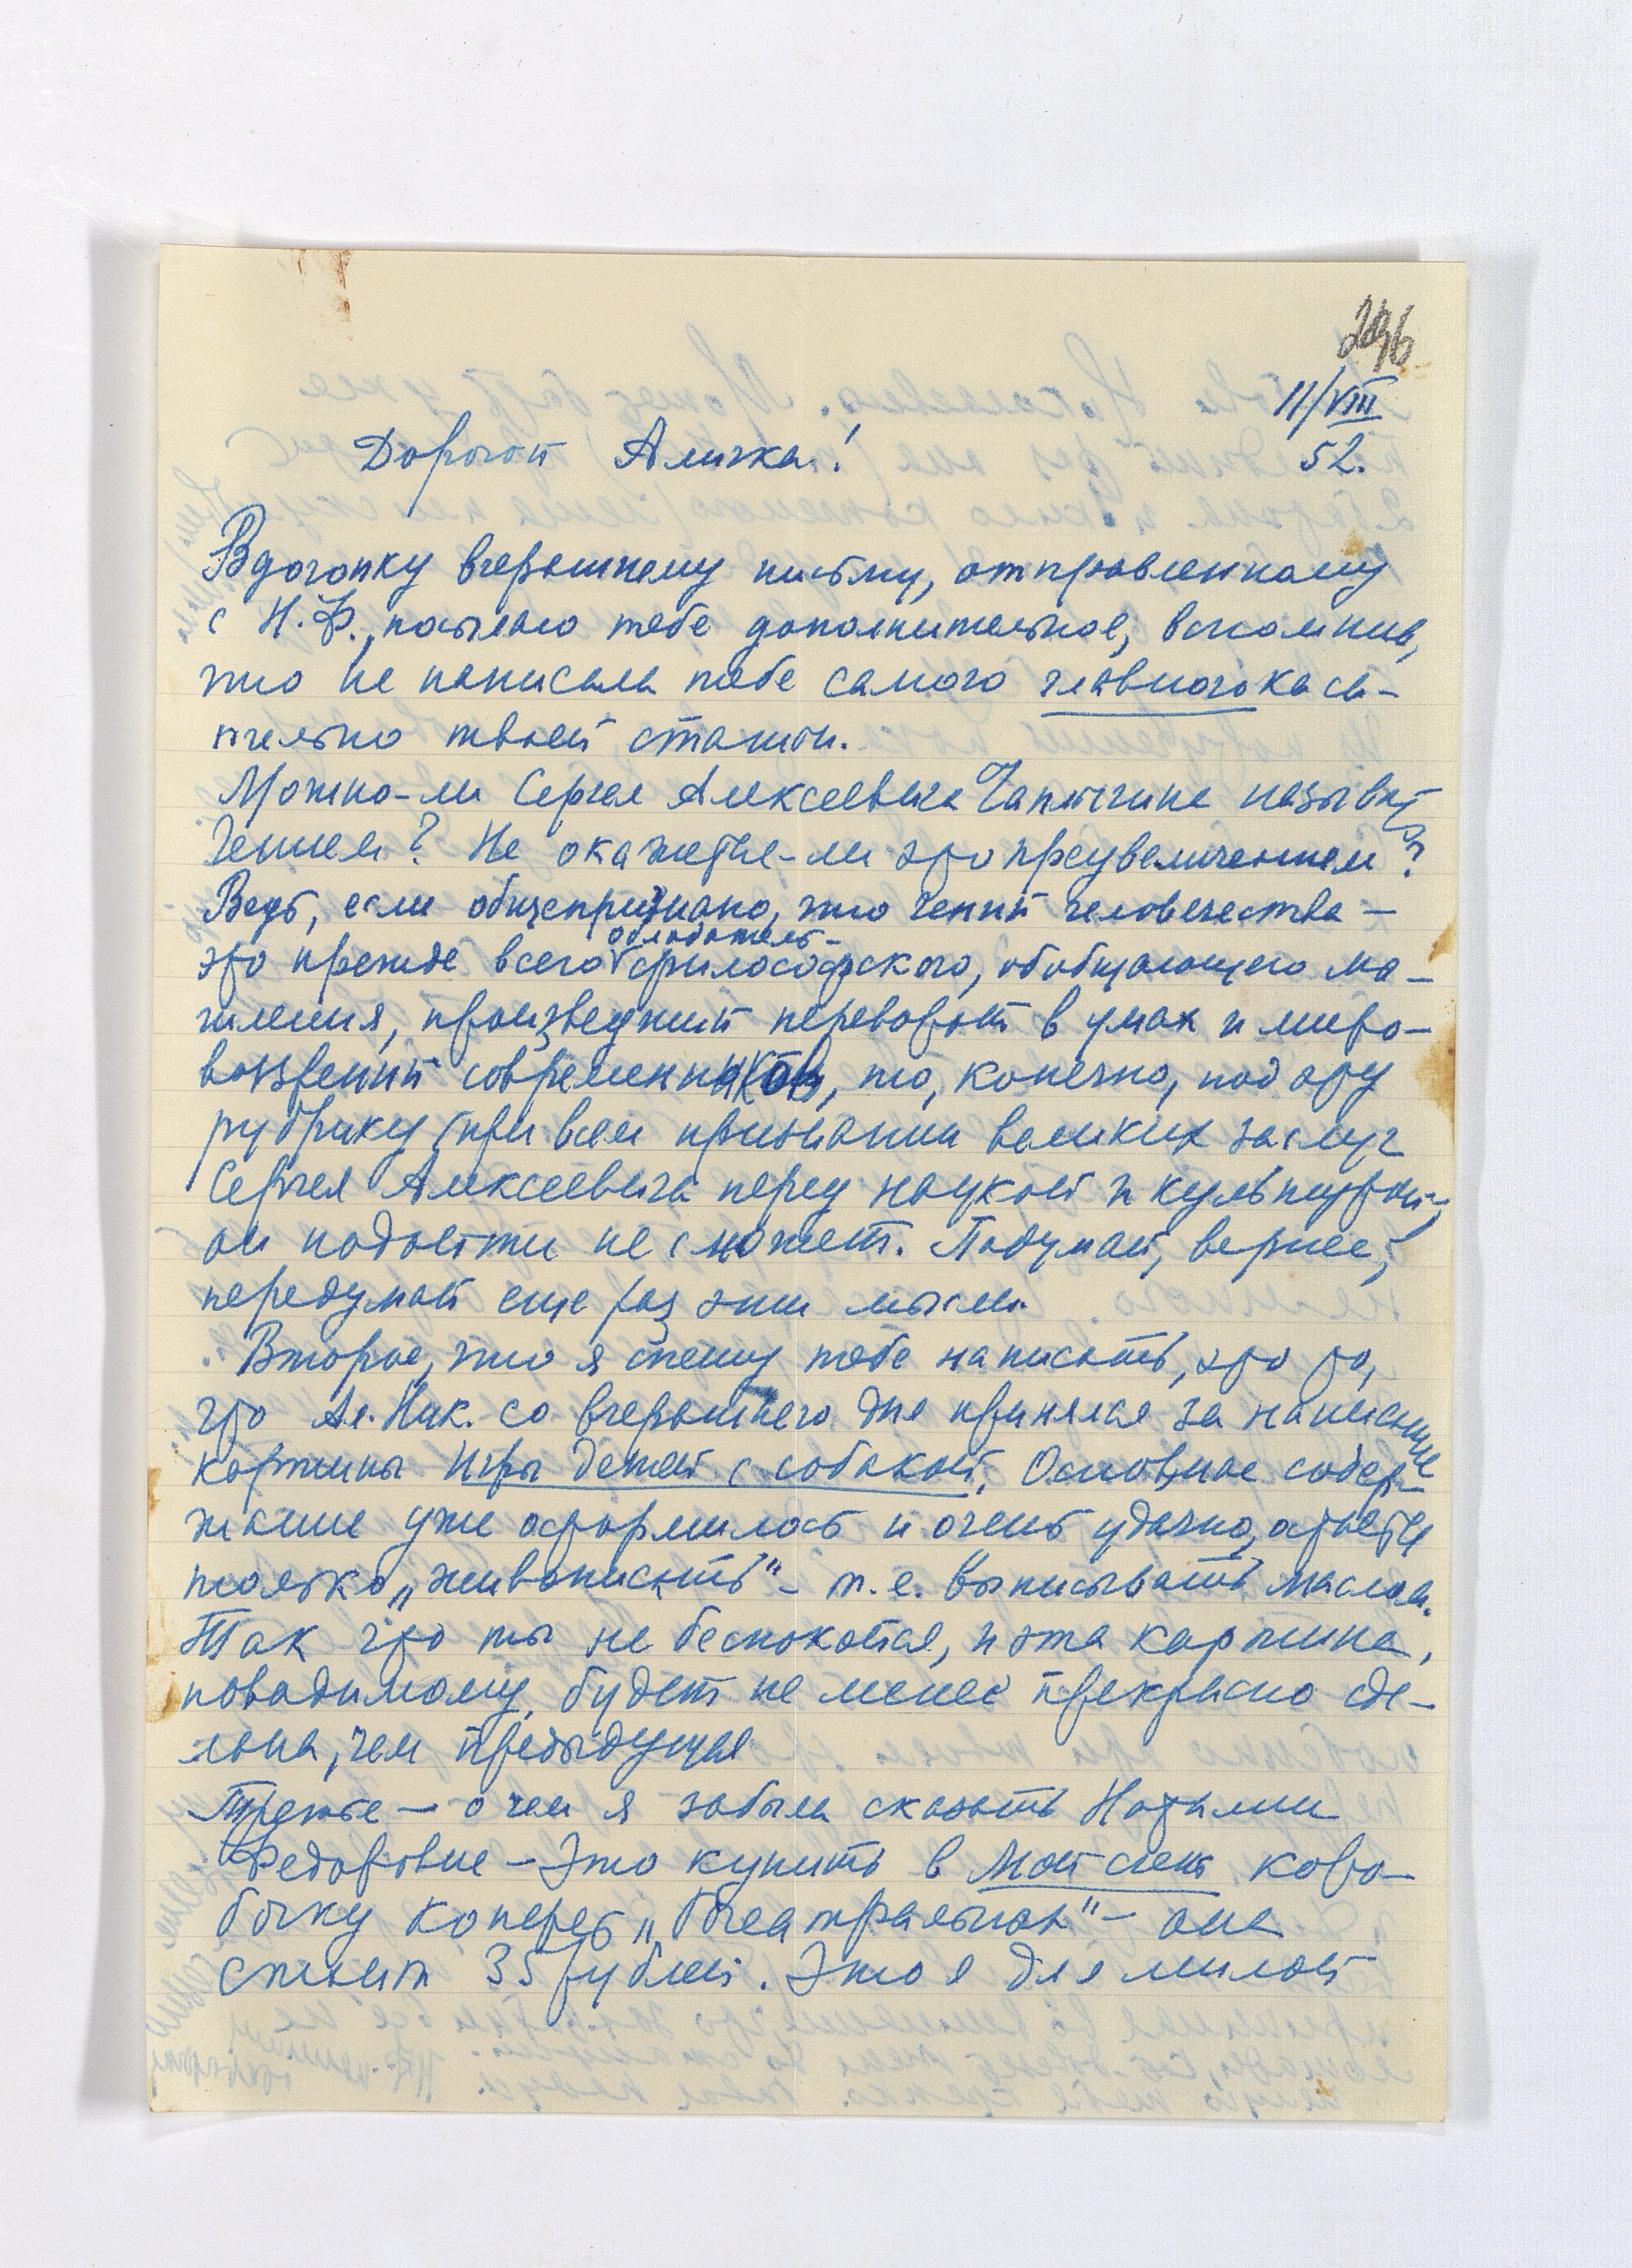 11/VIII
52.
Дорогой Аличка!
Вдогонку вчерашнему письму, отправленному
с Н.Ф., посылаю тебе дополнительное, вспомнив,
что не написала тебе самого главного каса-
тельно твоей статьи.
Можно-ли Сергея Алексеевича Чаплыгина назывять
Гением? Не окажется-ли это преувеличением?
Ведь, если общепризнано, что гений человечества —
это прежде всего обладатель философского, обобщающего мы-
шления, произведший переворот в умах и миро-
воззрении современников, то, конечно, под эту
рубрику (при всем признании великих заслуг
Сергея Алексеевича перед наукой и культурой)
он подойти не сможет. Подумай, вернее,
передумай еще раз эти мысли.
Второе, что я спешу тебе написать, это то,
что Ал. Ник. со вчерашнего дня принялся за написание
картины Игры детей с собакой. Основное содер-
жание уже оформилось и очень удачно, остается
только „живописать" – т.е. выписывать маслом.
Так что ты не беспокойся, и эта картина,
повидимому, будет не менее прекрасно сде-
лана, чем предыдущая
Третье — о чем я забыла сказать Наталии
Федоровне – это купить в Моссельт коро-
бочку конфет „Театральная" – она
стоит 35 рублей. Это я для милой